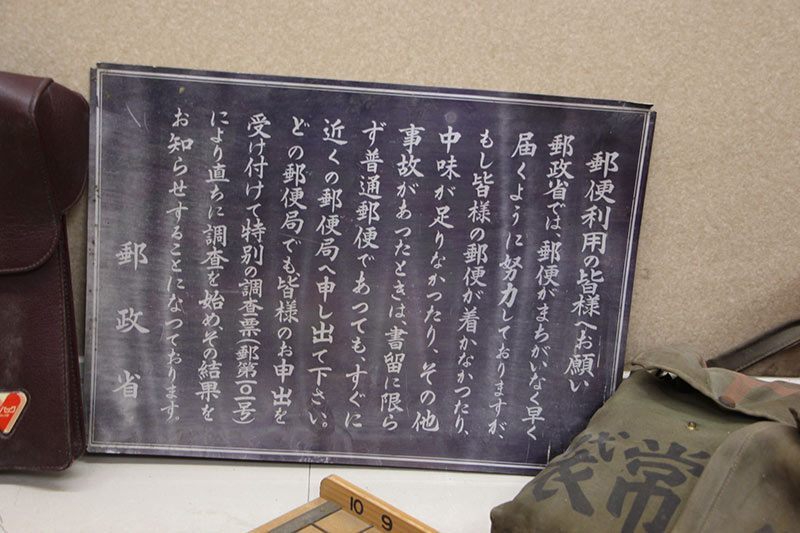 郵便利用の皆様へお願い
郵政省では、郵便がまちがいなく早く
届くように努力しておりますが、
もし皆様の郵便が着かなかつたり、
中味が足りなかつたり、その他
事故があつたときは、書留に限ら
ず普通郵便であつても、すぐに
近くの郵便局へ申し出て下さい。
どの郵便局でも、皆様のお申出を
受け付けて特別の調査票(郵第一〇一号)
により直ちに調査を始め、その結果を
お知らせすることになつております。
郵政省
10 9